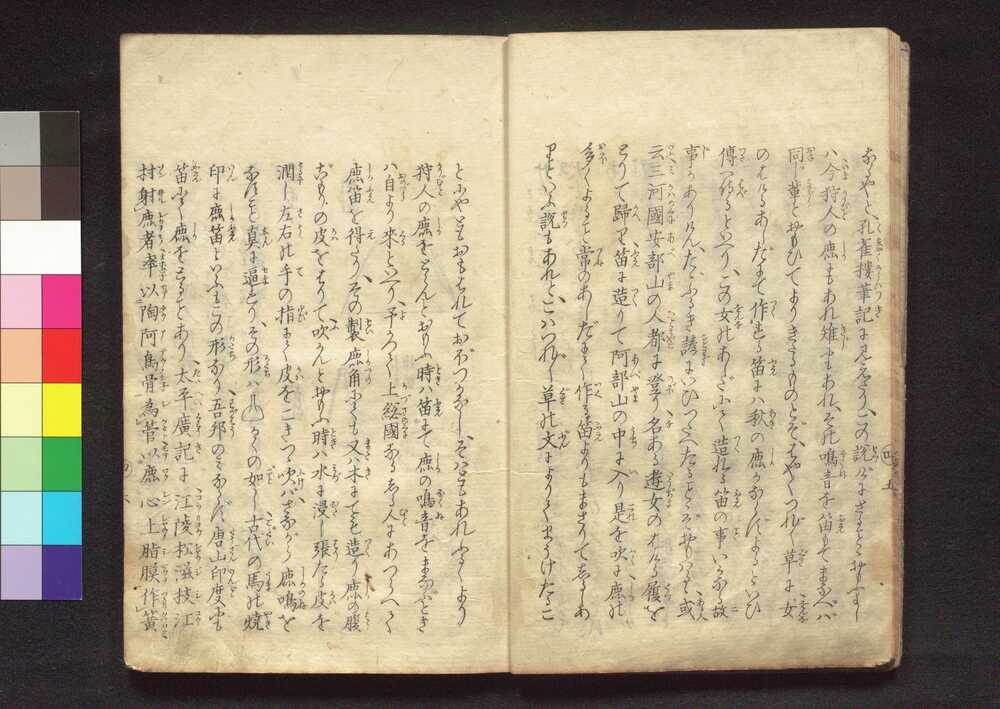 なるや、孔雀樓筆記に見えたり、この説げにさることおもへり
ハ今狩人の鹿もあれ雉もあれ、その鳴音を笛もてまねべバ
同じ輩とおもひてよりきたるものとぞ、はやくつれ〴〵草に女
のはけるあしだにて作れる笛にハ秋の鹿かならずよるといひ
傳へ侍るといへり、この女のあしだにて造れる笛の事いかなる故
事かありけん、たゞふるき諺にいひつたへたることゞぞおもはる、或
云三河國安部山の人都に登り名ある遊女のはける履を
とりて歸り笛に造りて阿部山の中に入り是を吹に鹿の
多くよること常のあしだにて作る笛よりもまさりてしるしあ
りといふ説もあれど、こハつれ〴〵草の文によりてまうけたるこ
とにやともおもはれておぼつかなし、そハともあれかくもあれ
狩人の鹿をとらんとおもふ時ハ笛にて鹿の鳴音をまねぶとき
ハ自より来といへり、予かつて上総國なる人にあつらへて
鹿笛を得たり、その製鹿角にても又ハ木にても造り鹿の腹
ごもりの皮をはりて、吹んとおもふ時ハ水に浸し張たる皮を
潤し左右の手の指にて皮をこきつゝ吹バさながら鹿鳴を
なすこと真に逼り、その形ハかくの如し、古代の馬の焼
印に鹿笛といふもこの形なり、吾邦のミならず唐山印度にも
笛にて鹿をよぶことあり、太平廣記に江陵松滋枝江
村射鹿者率以陶阿鳥骨為管以鹿心上脂膜作簧